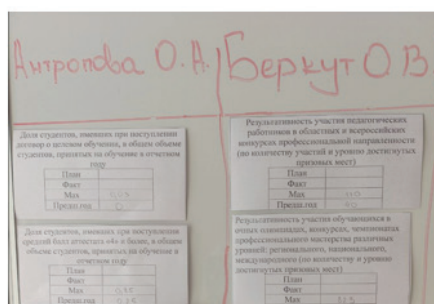 Антропова О. А.
Беркут О В
Доля студентов, имевших при поступлении
договор о целевом обучении, в общем объеме
студентов, принятых на обучение в отчетном
году
План
Факт
Мах 0,03
Предш.год 0
Доля студентов, имевших при поступлении
средний балл аттестата «4» и более, в общем
объеме студентов, принятых на обучение в
отчетном году
План
Факт
Мах
Предш.год
Результативность участия педагогических
работников в областных и всероссийских
конкурсах профессиональной направленности
(по количеству участий и уровню достигнутых
призовых мест)
План
Факт
Мах 110
Предш.год
Результативность участия обучающихся в
очных олимпиадах, конкурсах, чемпионатах
профессионального мастерства различных
уровней: регионального, национального,
международного (по количеству и уровню
достигнутых призовых мест)
План
Факт
Мах